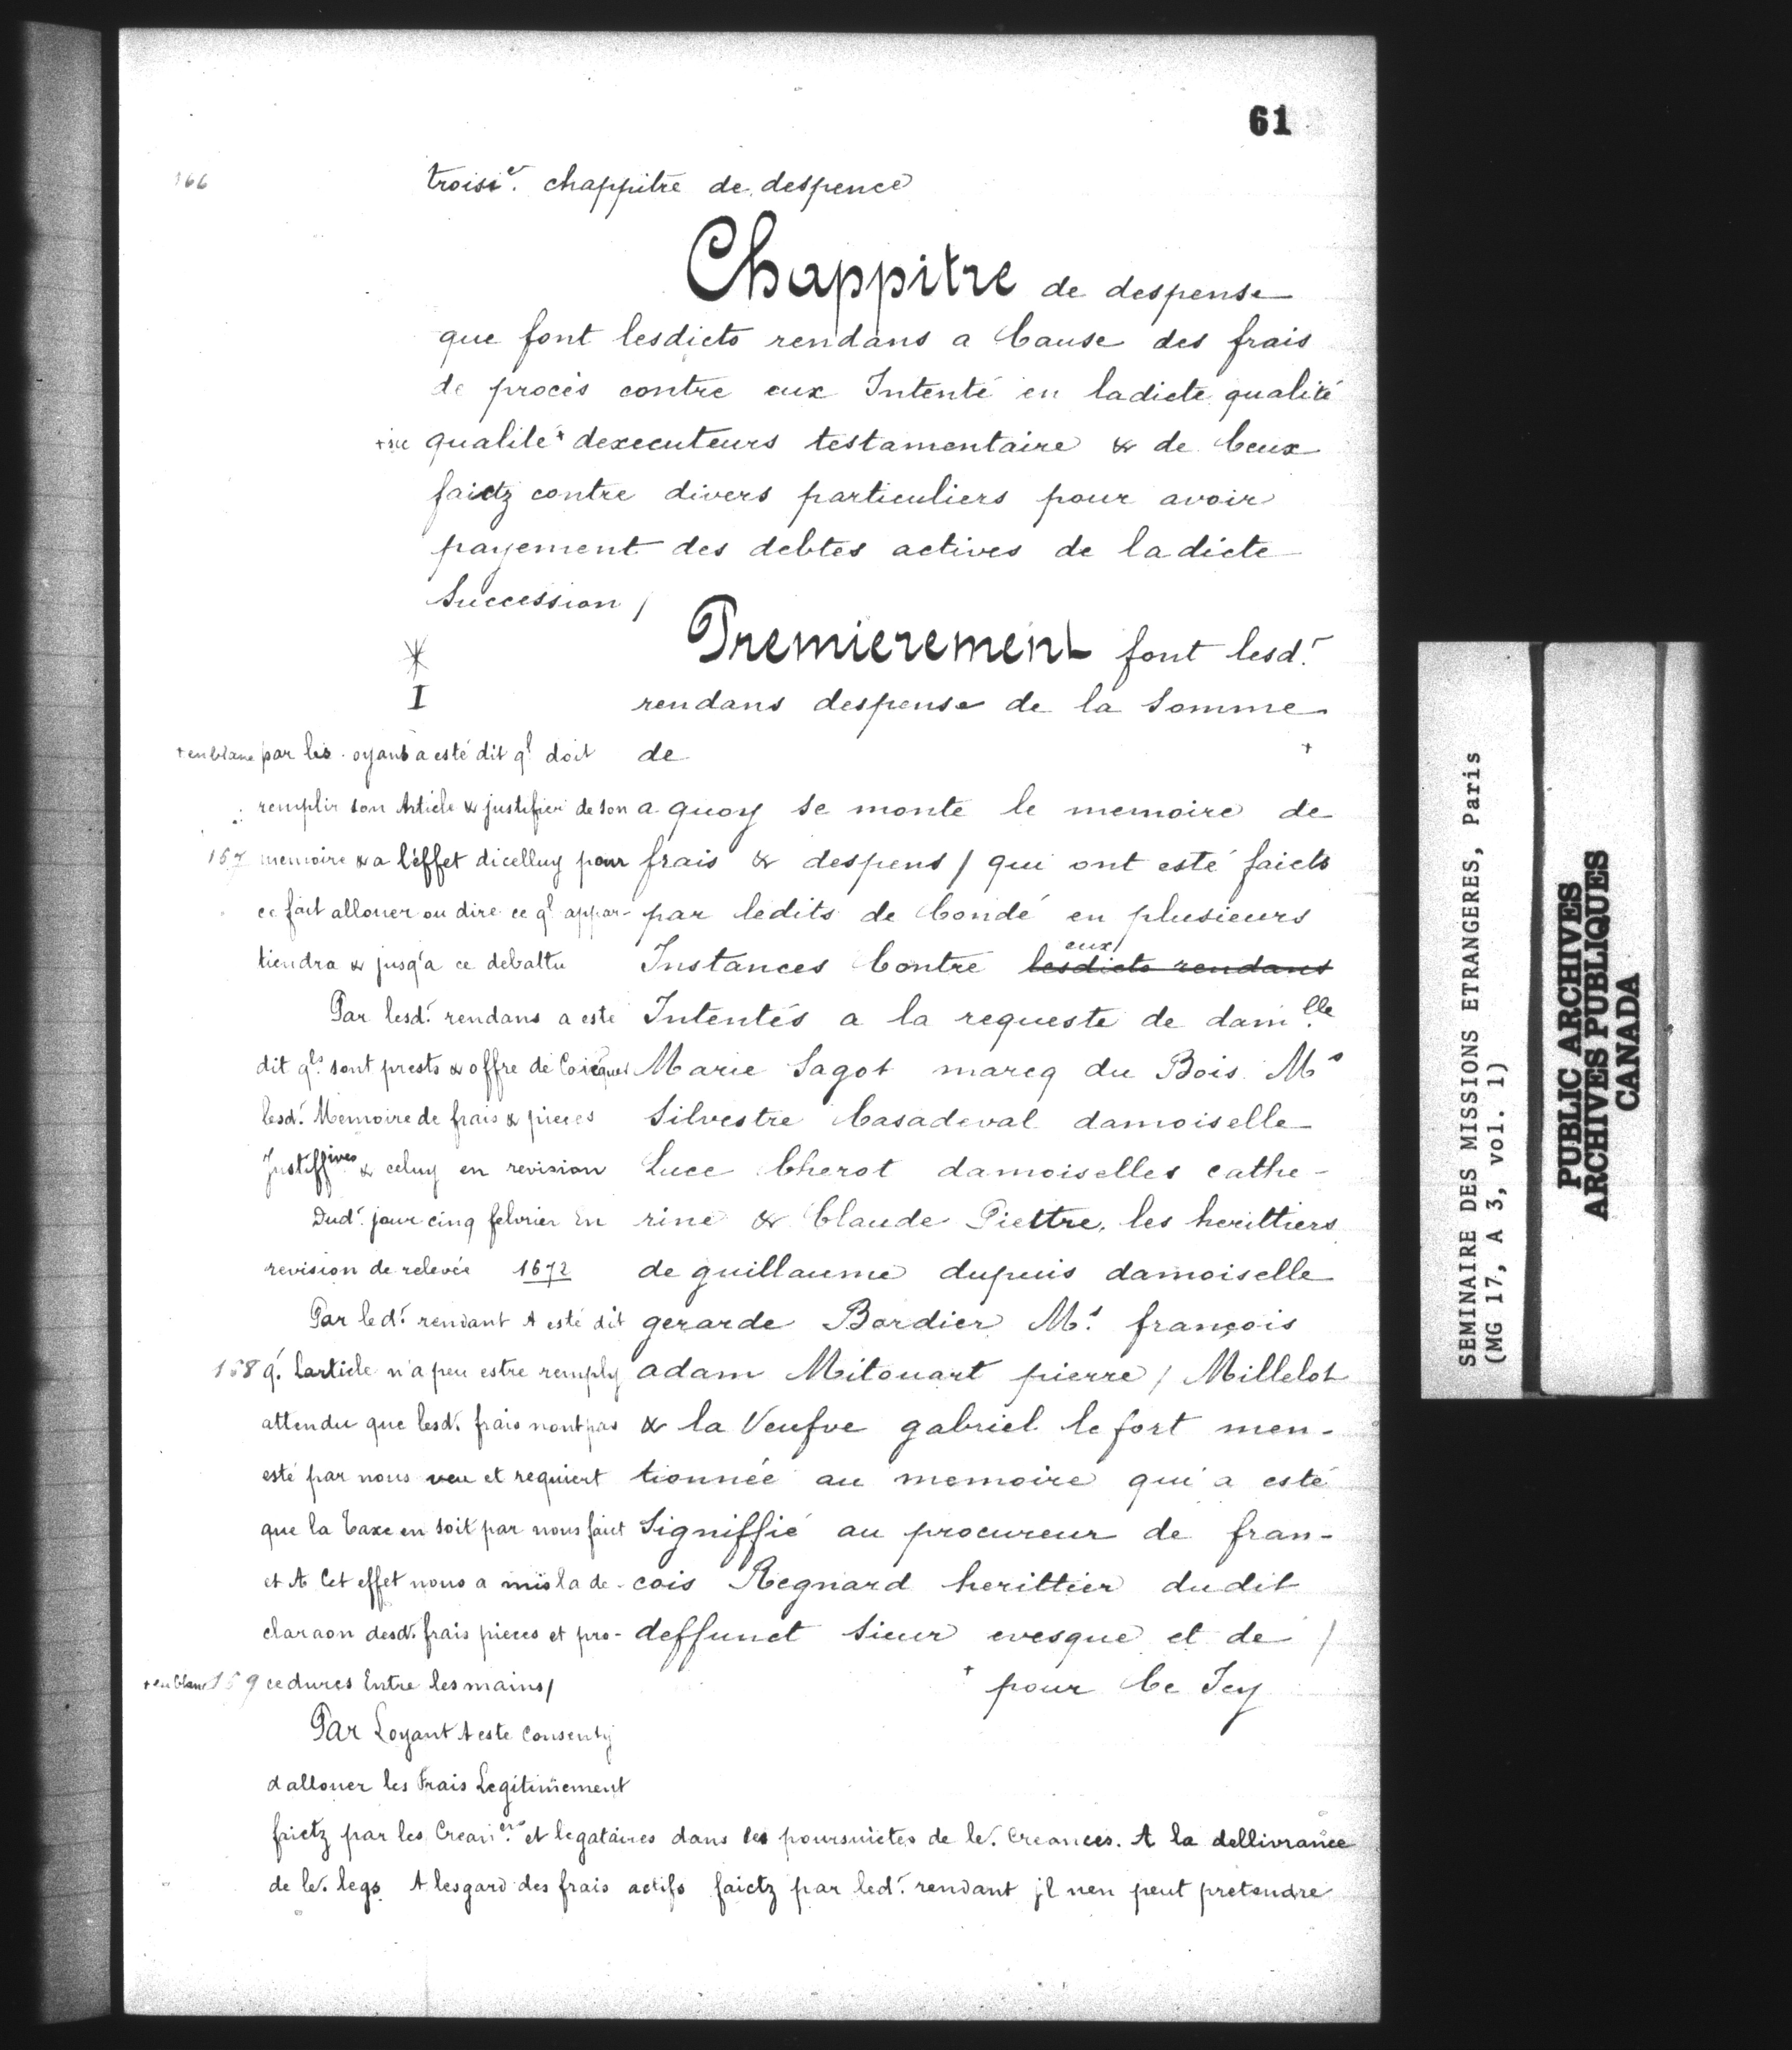 61
166
troisie. chappitre de despence
Chappitre de despense
que font lesdicts rendans a Cause des frais
de procès contre eux Intenté en ladicte qualité
+sic qualité+ dexecuteurs testamentaire & de Ceux
faictz contre divers particuliers pour avoir
payement des debtes actives de ladicte
Succession /
Premierement font lesd.r
rendans despense de la Somme
de +
a quoy se monte le memoire de
frais & despens / qui ont esté faicts
par ledits de Condé en plusieurs
Instances Contre lesdicts rendans eux/
Intentés a la requeste de dam.lle
Marie Sagot marcq du Bois Ms
Silvestre Casadeval damoiselle
Luce Cherot damoiselles cathe-
rine & Claude Piettre, les herittiers
de guillaume dupuis damoiselle
gerarde Bordier M.s françois
adam Mitouart pierre / Millelot
& la Veufve gabriel le fort men-
tionnée au memoire qui a esté
Signiffié au procureur de fran-
cois Regnard herittier dudit
deffunct Sieur evesque et de /
+ pour Ce Icy
I
+en blanc par les oyans a esté dit ql doit
remplir son Article & justifier de son
167 memoire & a l'éffet dicelluy pour
ce fait allouer ou dire ce ql appar-
tiendra & jusq'a ce debattu
Par lesd.r rendans a esté
dit qls sont prests & offre de
lesd.r Memoire de frais & pieces
Justiffives & celuy en revision
Dud.r jour cinq febvrier En
revision de relevée 1672
Par led.r rendant A esté dit
168 q. Larticle n'a peu estre remply
attendu que lesd. frais nont pas
esté par nous veu et requiert
que la taxe en soit par nous faict
et A Cet effet nous a mis la de-
claraon desd. frais pieces et pro-
+en blanc 169 cedures Entre les mains/
Par Loyant A este Consenty
dallouer les Frais Legitimement
faictz par les Crean.ers et legataires dans les poursuictes de le. Creances. A la dellivrance
de le. legs. A lesgard des frais actifs faictz par led.r rendant jl nen peut pretendre
SEMINAIRE DES MISSIONS ETRANGERES, Paris
(MG 17, A 3, vol. 1)
PUBLIC ARCHIVES
ARCHIVES PUBLIQUES
CANADA